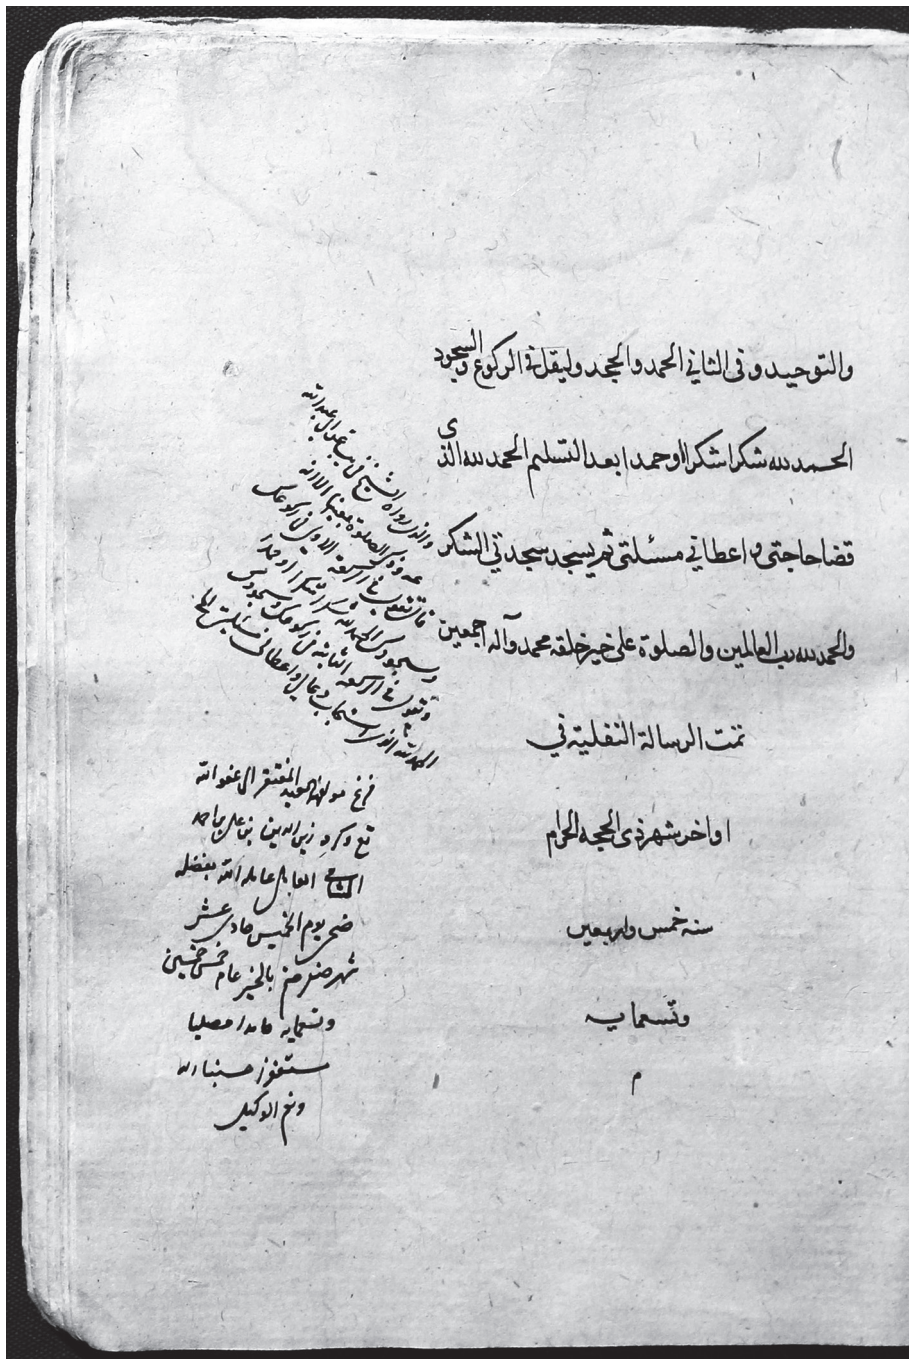 والتوحيد وفى الثاني الحمد والجحد وليقل في الركوع والسجود
الحمد لله شكرا شكرا وحمدا بعد التسليم الحمد لله الذى
قضا حاجتى واعطاني مسئلتى ثم يسجد سجدتي الشكر
والحمد لله رب العالمين والصلوة على خير خلقه محمد وآله اجمعين
تمت الرسالة النفلية في
اواخر شهر ذى الحجه الحرام
سنه خمس واربعين
وتسعمايه
م
والذى رواه الشيخ في عن ابى عبدالله
في الصلوة بعينها الا انه
قال تقول في الركعة الاولى في ركوعك
وسجودك الحمد لله شكرا شكرا وحمدا
وتقول في الركعه الثانيه في ركوعك وسجودك
الحمد لله الذى استجاب دعائى واعطانى مسئلتى
فرغ مولفها العبد المفتقر الى عفو الله
تع وكرمه زين الدين بن على بن احمد
الشامى العاملى عامله الله بفضله
ضحى يوم الخميس حادى عشر
شهر صفر ختم بالخير عام خمس خمسين
وتسعمايه حامدا مصليا
مستغفرا حسبنا الله
ونعم الوكيل